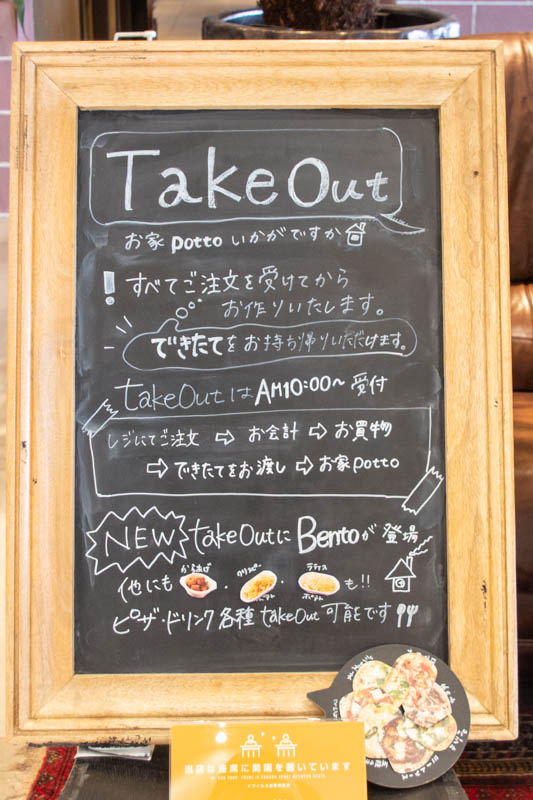 Take Out
お家 potto いかがですか
! すべてご注文を受けてから
お作りいたします。
できたてをお持ち帰りいただけます。
takeOutは AM10:00〜 受付
レジにてご注文 ⇨ お会計 ⇨ お買物
⇨ できたてをお渡し ⇨ お家 potto
NEW takeOutに Bentoが 登場
他にも から揚げ・クリスピー・ラティス
も!!
ピザ・ドリンク各種 takeOut 可能です
当店は座席に間隔を置いています